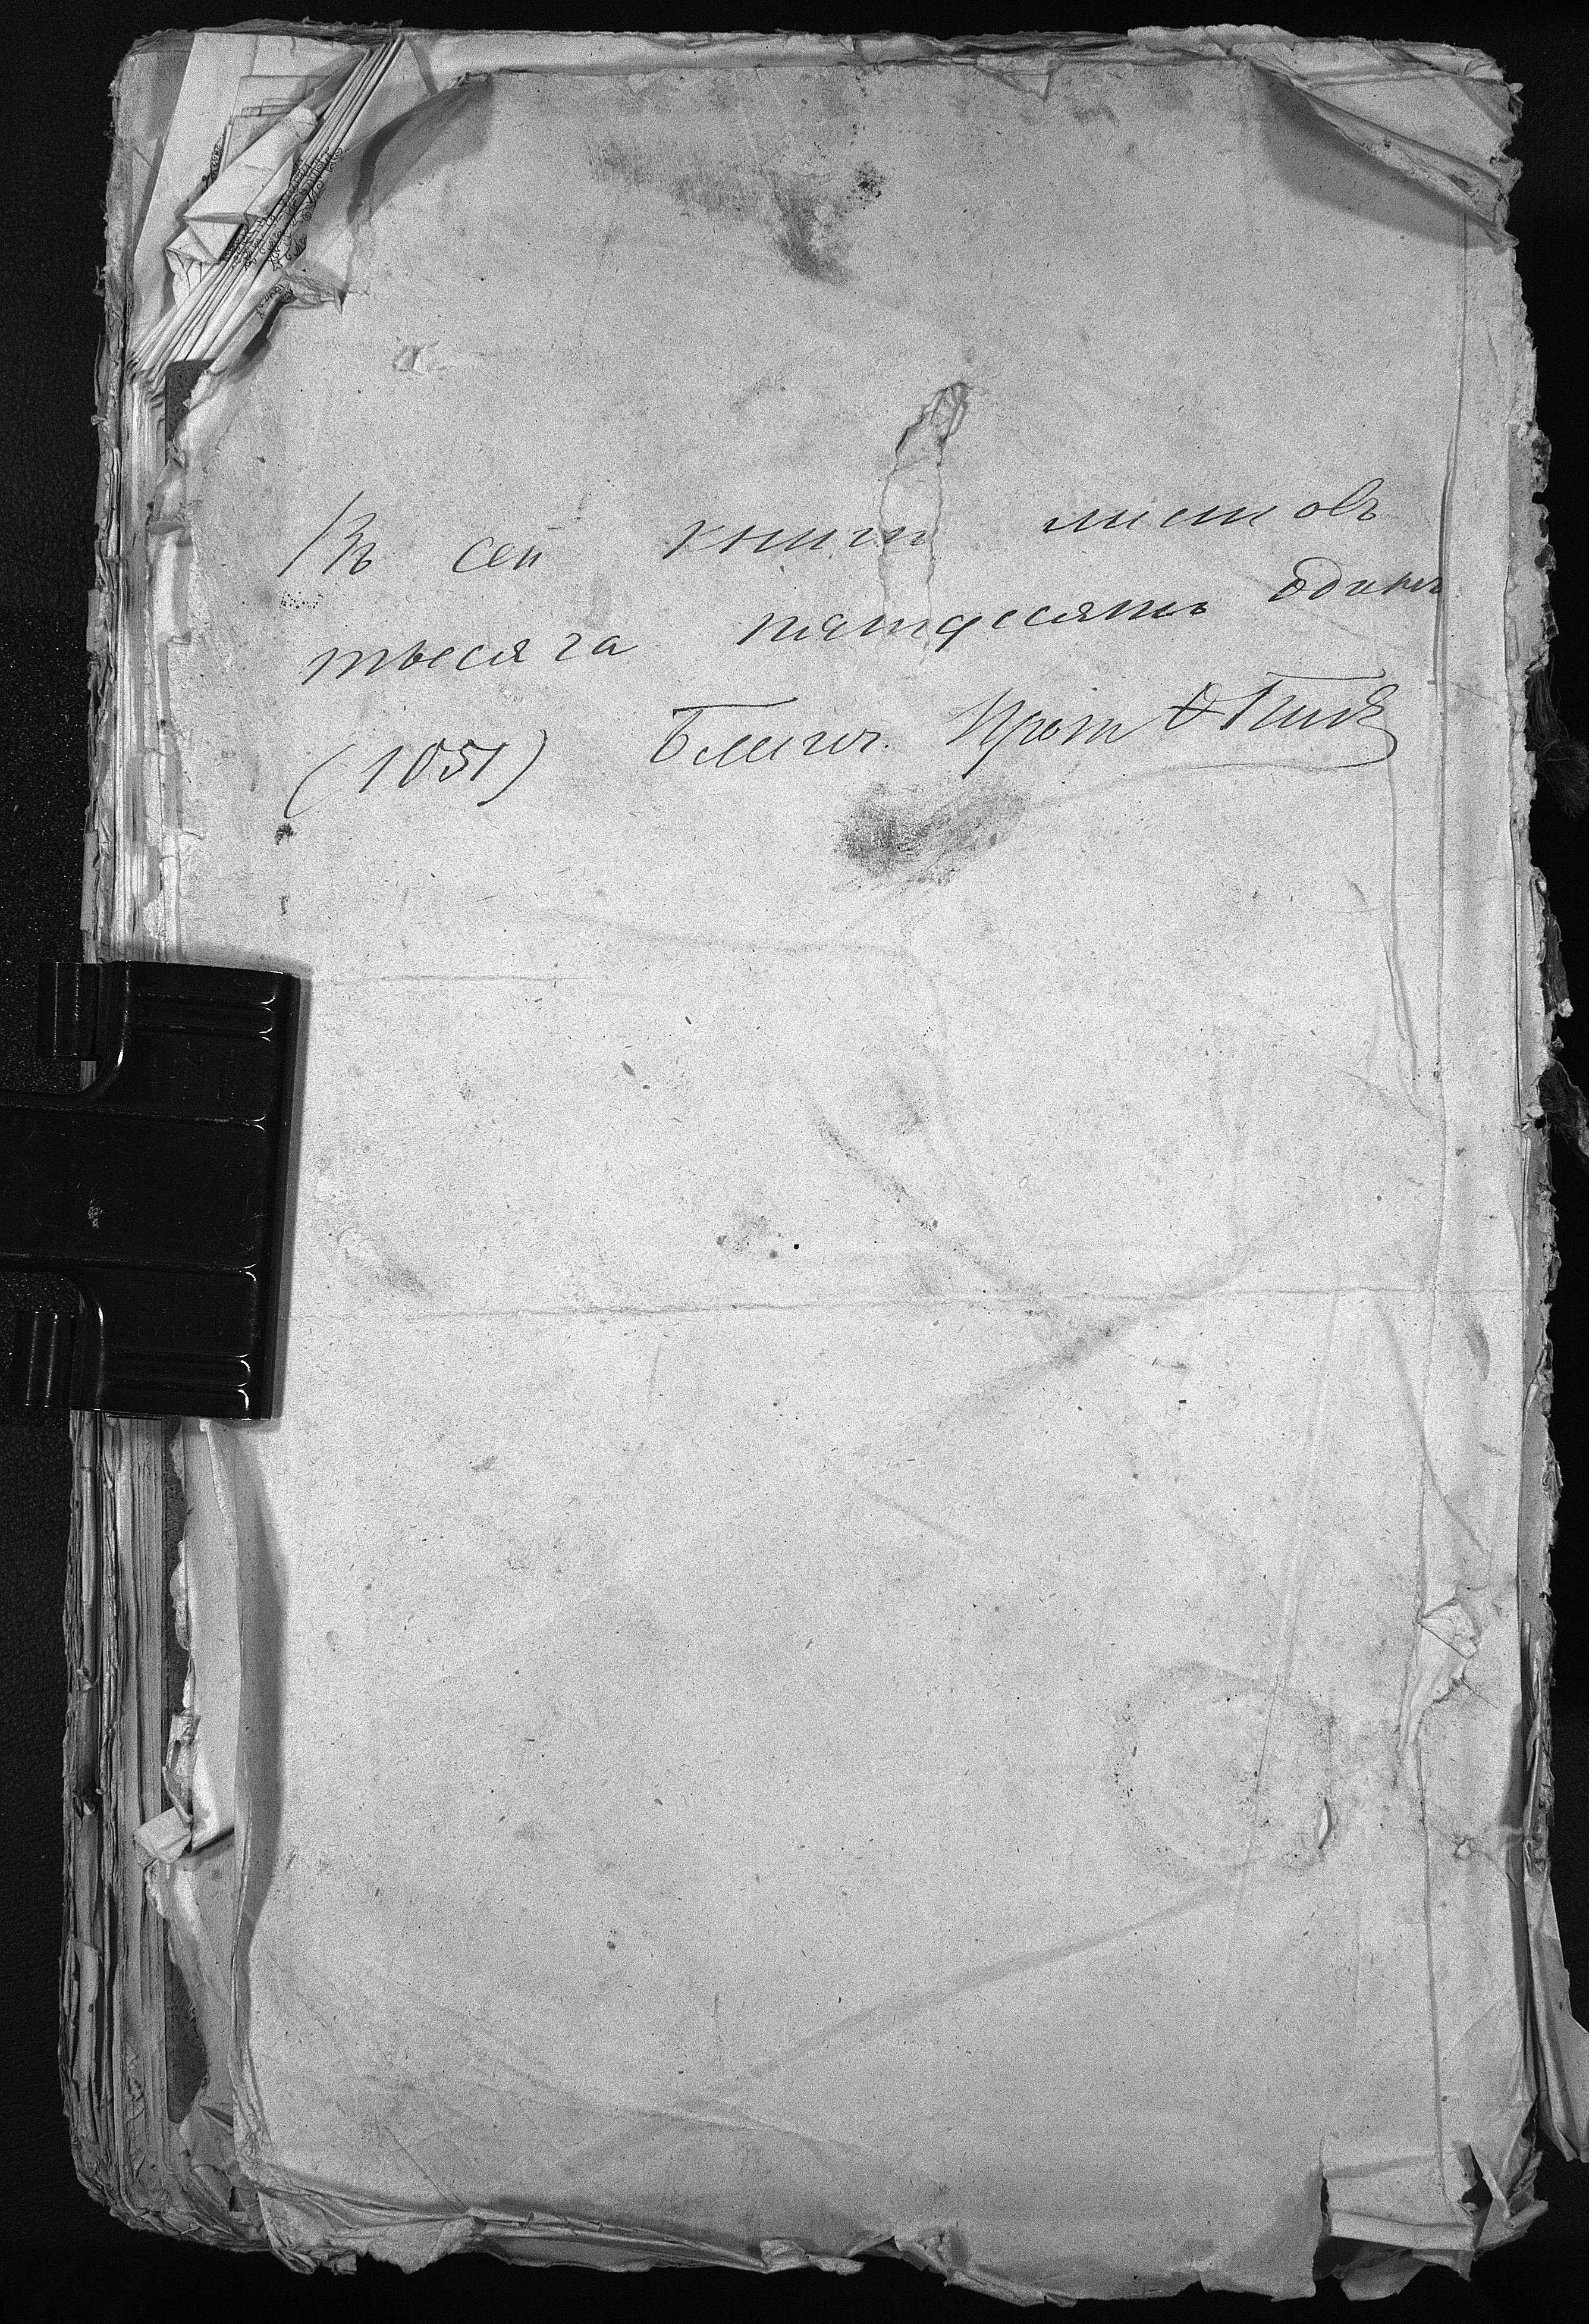 Въ сей книги листовъ
тысяга пятдесятъ одинъ
(1051) Благоч. Прот